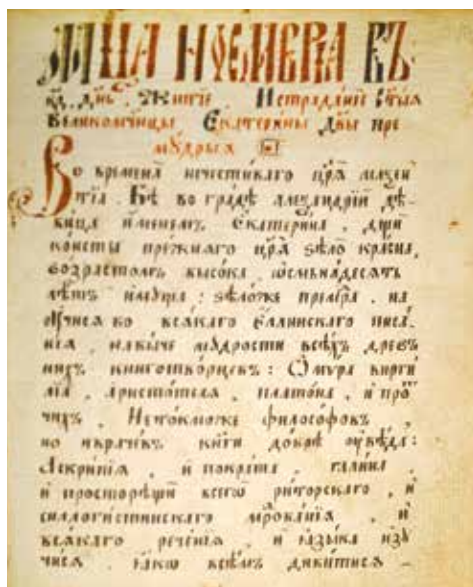 Мц҃а ноемврїа въ
к҃д, дн҃ь. Житїе . И страданїе ст҃ыѧ
Великомч҃ницы Екатерины Дв҃ы пре
мꙋ́дрыѧ
Во времена нечестиваго цр҃ѧ маѯен
тїа . Бѣ во градѣ алеѯандрїи дѣ-
вица именемъ Екатерина , дщи
консты прежнѧго цр҃ѧ ѕѣло красна,
возрастомъ высока , ѡсмьнадесѧть
лѣтъ имꙋщи : ѕѣложе премдра . на
ꙋчисѧ бо всѧкаго Еллинскаго писа
нїѧ , навыче мꙋдрости всѣхъ древ
нихъ книготворцевъ : Омура вирги
лїа , Аристотелѧ , платона , и про
чихъ , Нетокможе философовъ ,
но и врачевъ книги добрѣ ꙋвѣда :
Аскрипїа , и пократа , галина ,
и пространнѣ всего риторскаго , и
силлогистинскаго , и
всѧкаго речениѧ , и ꙗзыка изꙋ
чисѧ . ꙗкѡ всѣмъ дивитисѧ -